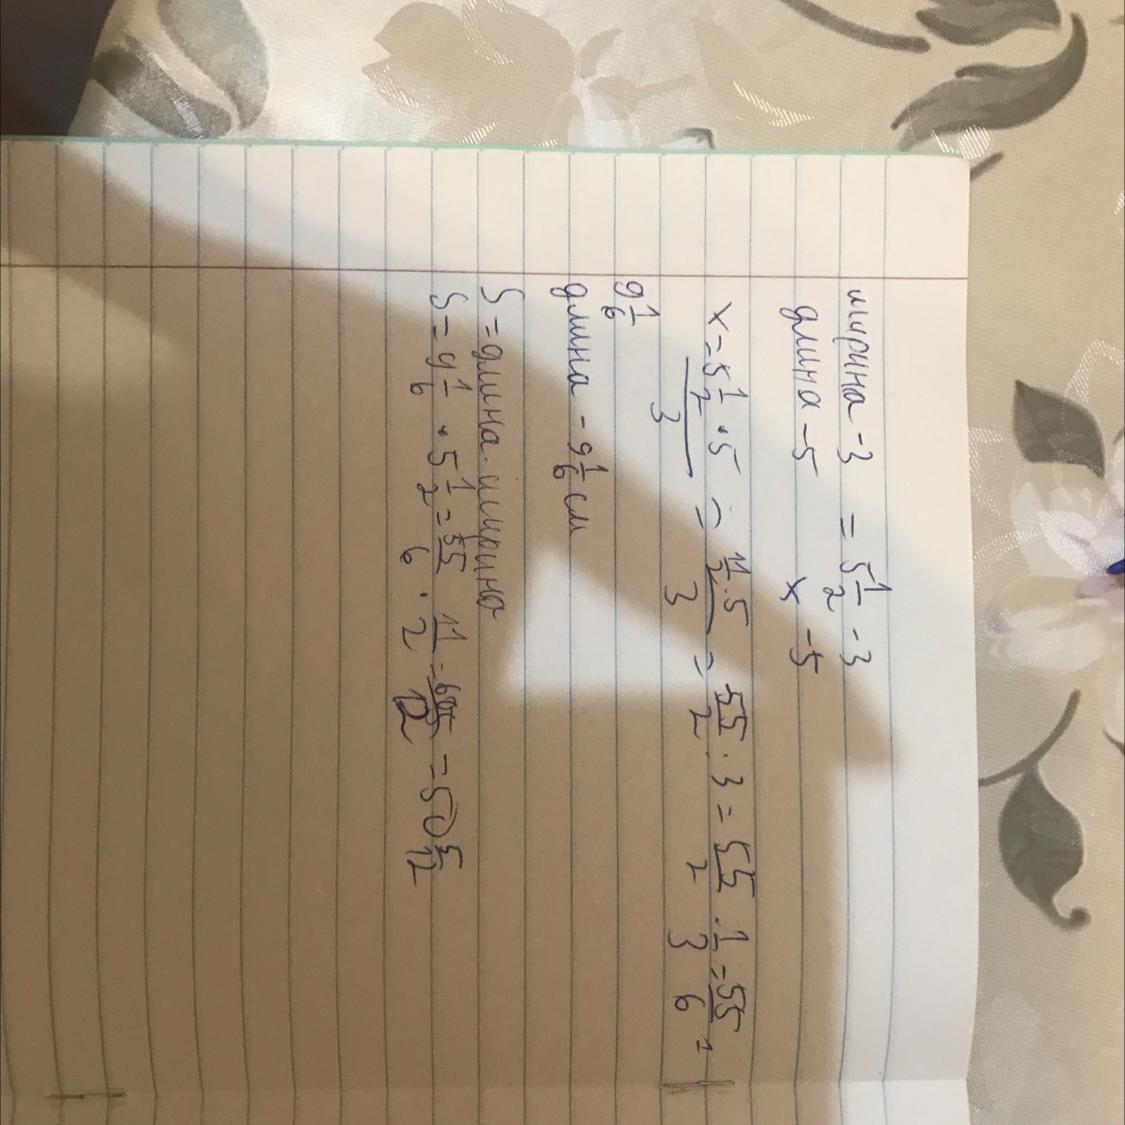 ширина -3 = 5 1/2 - 3
длина -5 x -5
x = 5 1/2 · 5 / 3 = 11/2 · 5 / 3 = 55/2 : 3 = 55/2 · 1/3 = 55/6 =
9 1/6
длина - 9 1/6 см
S = длина · ширина
S = 9 1/6 · 5 1/2 = 55/6 · 11/2 = 605/12 = 50 5/12